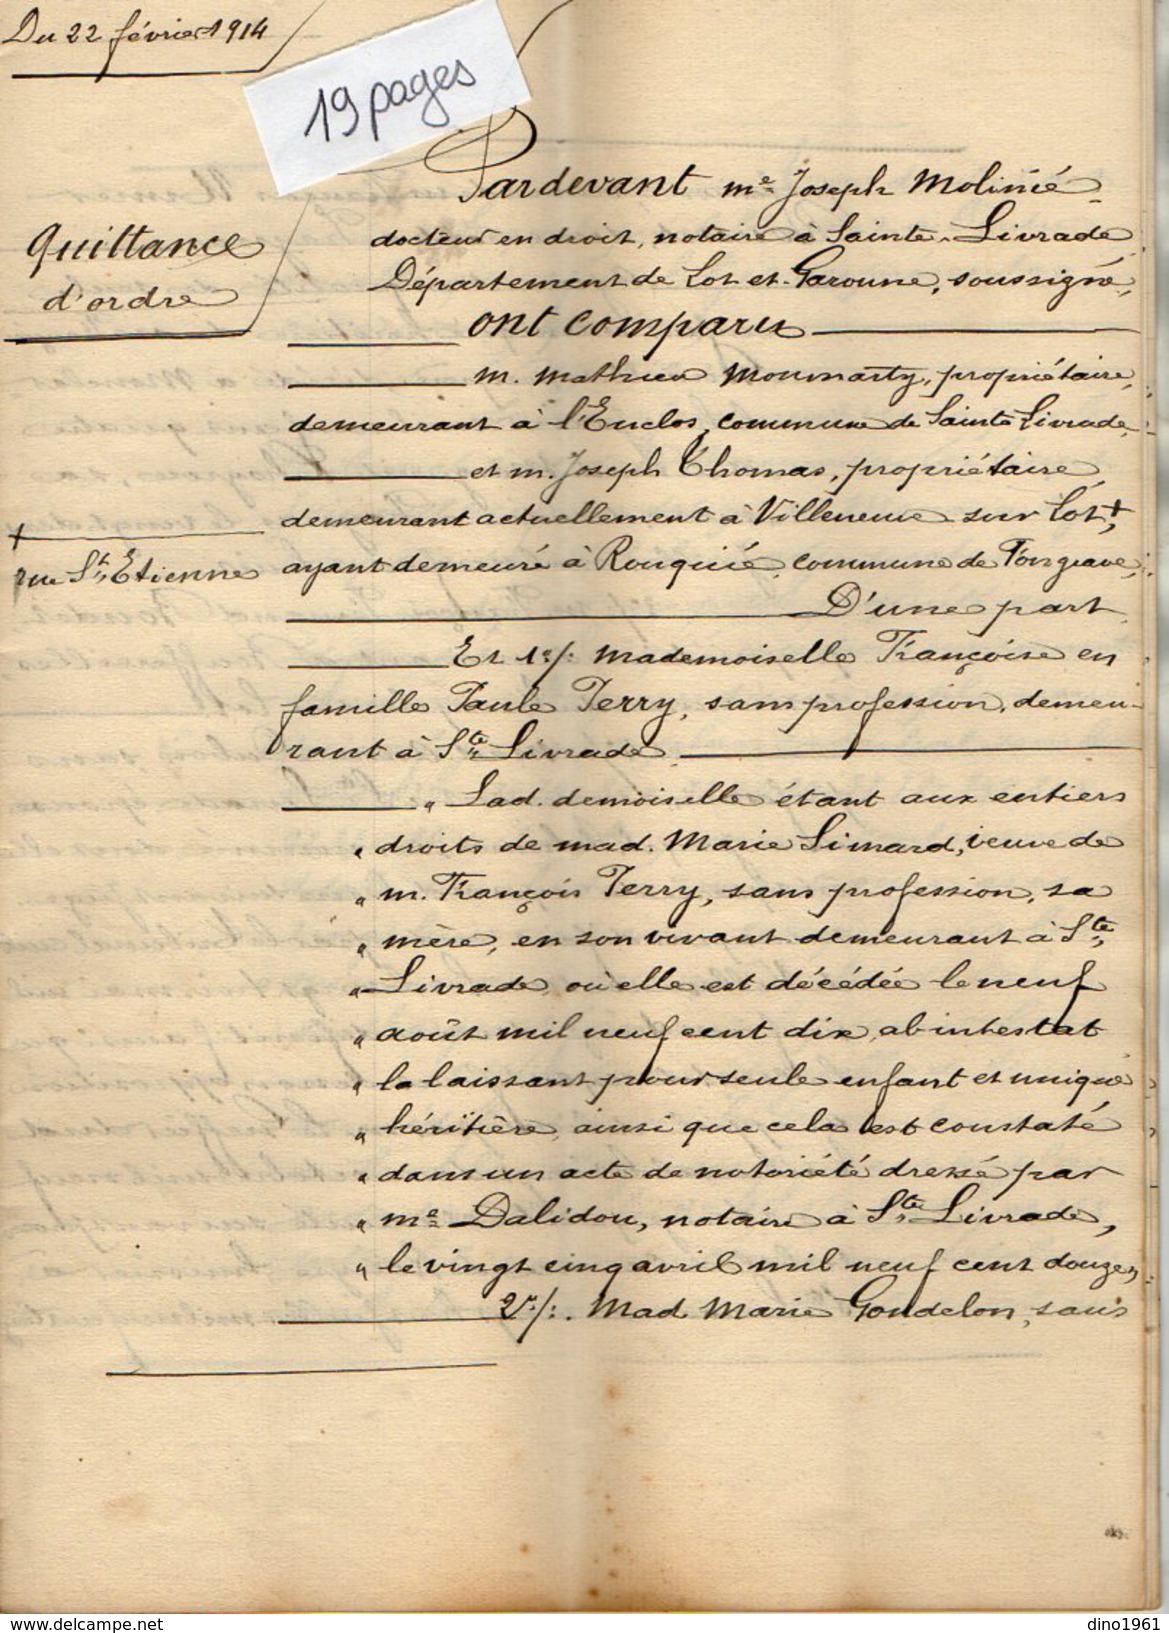 Du 22 février 1914
19 pages
Quittance
d'ordre
Pardevant Me Joseph Molinié
docteur en droit, notaire à Sainte-Livrade
Département de Lot-et-Garonne, soussigné,
ont comparu
M. Mathieu Moumarty, propriétaire,
demeurant à l'Enclos, commune de Sainte Livrade,
et M. Joseph Thomas, propriétaire
demeurant actuellement à Villeneuve sur Lot +,
+ rue St. Etienne
ayant demeuré à Rouquié, commune de Fongrave,
D'une part
Et 1°/: Mademoiselle Françoise en
famille Paule Terry, sans profession, demeu-
rant à Ste Livrade
" Lad. demoiselle étant aux entiers
" droits de mad. Marie Simard, veuve de
" M. François Terry, sans profession, sa
" mère, en son vivant demeurant à Ste
" Livrade, où elle est décédée le neuf
" août mil neuf cent dix, ab intestat
" la laissant pour seule enfant et unique
" héritière, ainsi que cela est constaté
" dans un acte de notoriété dressé par
" Me Dalidou, notaire à Ste Livrade,
" le vingt cinq avril mil neuf cent douze,
2°/: Mad. Marie Gondelon, sans
www.delcampe.net
dino1961